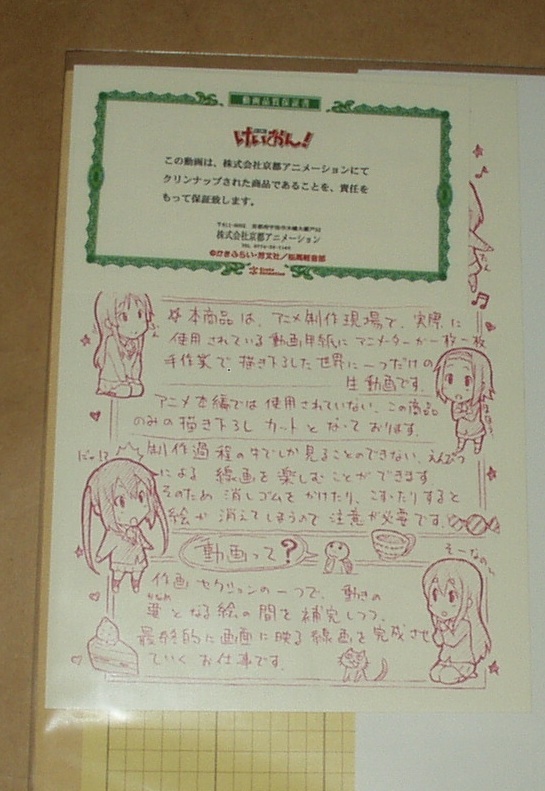 動画品質保証書
けいおん!
この動画は、株式会社京都アニメーションにて
クリンナップされた商品であることを、責任を
もって保証致します。
株式会社京都アニメーション
©かきふらい・芳文社/桜高軽音部
本商品は、アニメ制作現場で、実際に
使用されている動画用紙にアニメーターが一枚一枚
手作業で描き下ろした世界に一つだけの
生動画です。
アニメ本編では使用されていない、この商品
のみの描き下ろしカットとなっております。
制作過程の中でしか見ることのできない、えんぴつ
による線画を楽しむことができます
そのため消しゴムをかけたり、こすったりすると
絵が消えてしまうので注意が必要です。
動画って?
そーなのー
作画セクションの一つで、動きの
要となる絵の間を補完しつつ、
最終的に画面に映る線画を完成させ
ていくお仕事です。